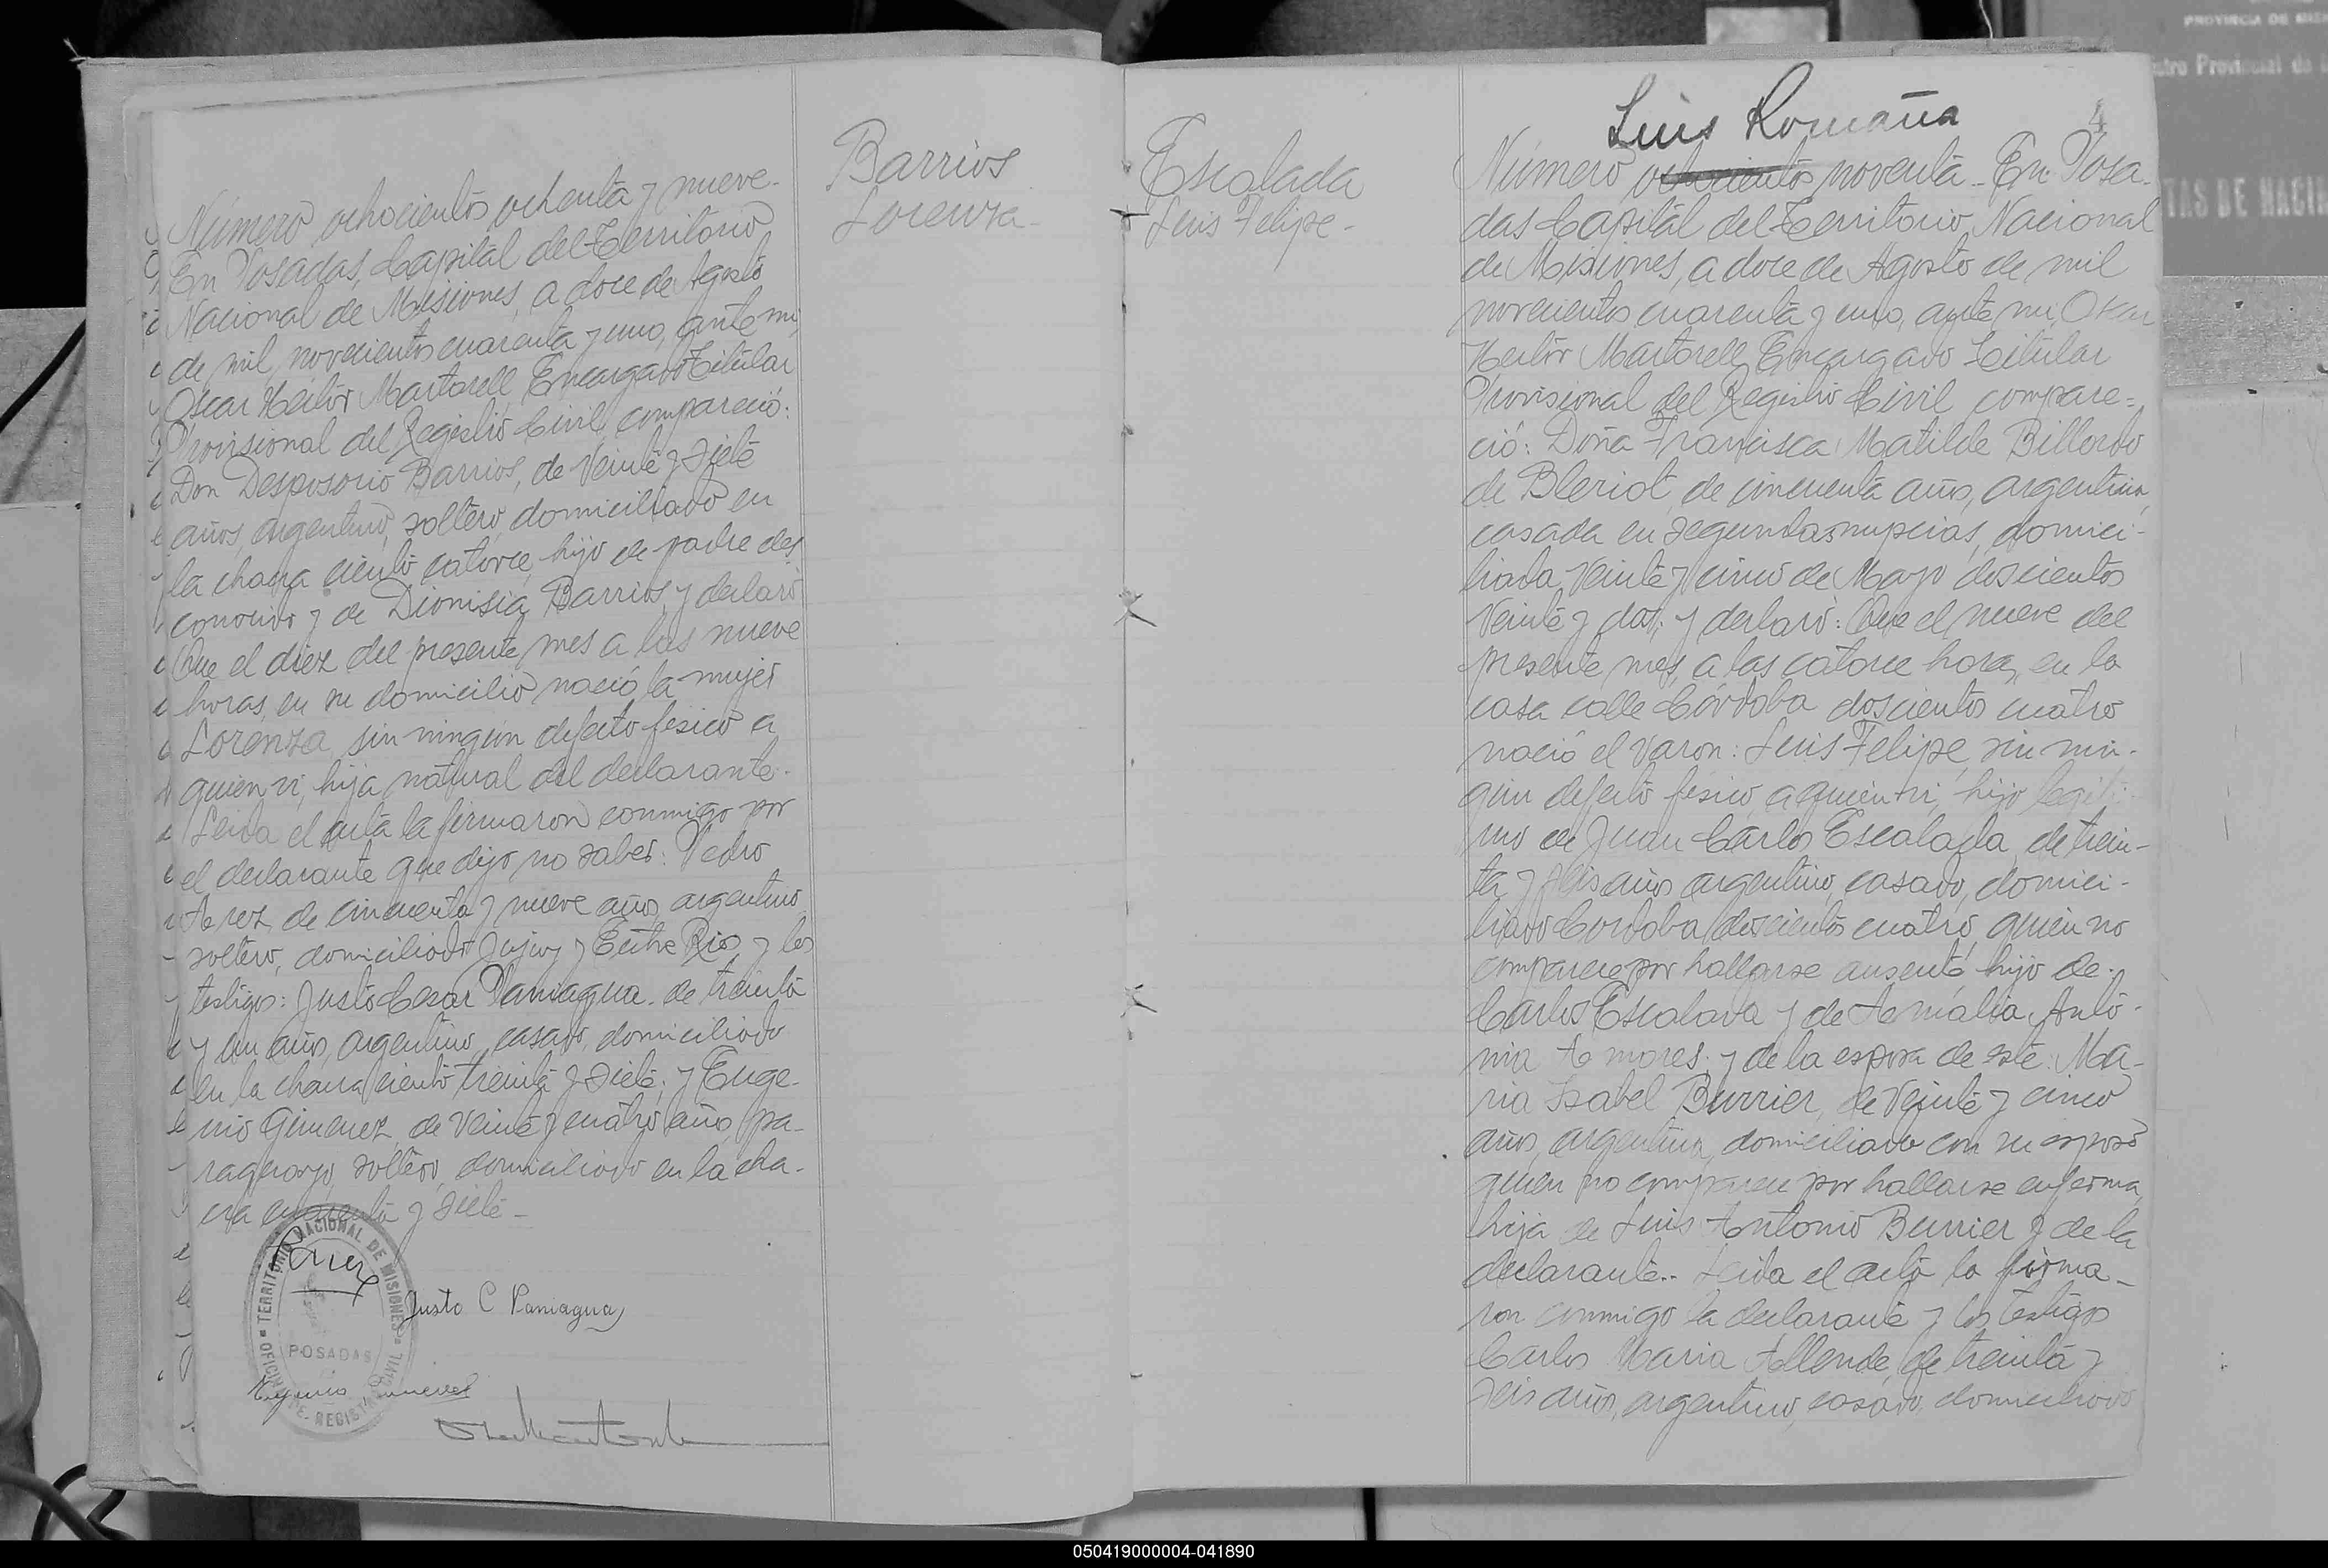 Número ochocientos ochenta y nueve-
En Posadas, Capital del Territorio
Nacional de Misiones, a doce de Agosto
de mil novecientos cuarenta y uno, ante mi,
Oscar Heitor Martorell, Encargado Titular
Provisional del Registro Civil, compareció:
Don Desposorio Barrios, de veinte y siete
años, argentino, soltero, domiciliado en
la chacra ciento catorce, hijo de padre des
conocido y de Dionisia Barrios, y declaró
Que el diez del presente mes a las nueve
horas, en su domicilio nació la mujer
Lorenza, sin ningún defecto fisico a
quien vi, hija natural del declarante.
Leida el acta la firmaron conmigo por
el declarante que dijo no saber: Pedro
de cincuenta y nueve años, argentino
soltero, domiciliado Jujuy y Entre Rios, y los
testigos: Justo Cesar Paniagua, de treinta
y un años, argentino, casado, domiciliado
en la chacra ciento treinta y siete; y Euge-
nio Gimenez, de veinte y cuatro años, pa-
raguayo, soltero, domiciliado en la cha-
cra cuarenta y siete-
Justo C Paniagua
TERRITORIO NACIONAL DE MISIONES
POSADAS
OFICINA DE REGISTRO CIVIL
Barrios
Lorenza-
Escalada
Luis Felipe-
Luis Romaña
4
Número ochocientos noventa- En Posa-
das Capital del Territorio Nacional
de Misiones, a doce de Agosto de mil
novecientos cuarenta y uno, ante mi, Oscar
Heitor Martorell, Encargado Titular
Provisional del Registro Civil compare=
ció: Doña Francisca Matilde Billordo
de Bleriot, de cincuenta años, argentina,
casada en segundas nupcias, domici-
liada veinte y cinco de Mayo doscientos
veinte y dos; y declaró: Que el nueve del
presente mes, a las catorce horas, en la
casa calle Córdoba doscientos cuatro
nació el varon: Luis Felipe, sin nin-
gun defecto fisico, a quien vi, hijo legiti
mo de Juan Carlos Escalada, de trein-
ta y seis años, argentino, casado, domici-
liado Cordoba doscientos cuatro, quien no
comparece por hallarse ausente, hijo de
Carlos Escalada y de Amalia Anto-
nia Amores; y de la esposa de este: Ma-
ria Isabel Burrier, de veinte y cinco
años, argentina, domiciliada con su esposo
quien no comparece por hallarse enferma,
hija de Luis Antonio Burrier y de la
declarante.. Leida el acta la firma-
ron conmigo la declarante y los testigos
Carlos Maria Allende, de treinta y
seis años, argentino, casado, domiciliado
PROVINCIA DE
Provincial de
TAS DE NACI
050419000004-041890